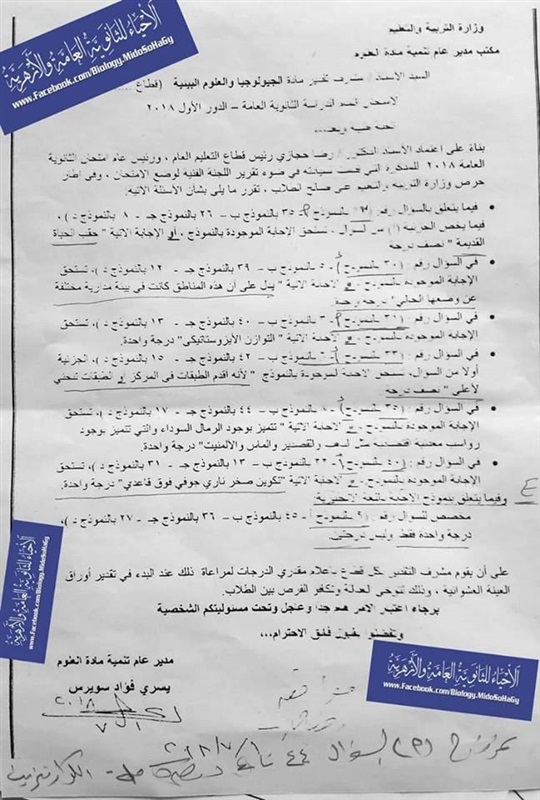 الأحياء للثانوية العامة والأزهرية
www.Facebook.com/Biology.MidoSoHaGy
وزارة التربية والتعليم
مكتب مدير عام تنمية مادة العلوم
السيد الأستاذ / مشرف تقدير مادة الجيولوجيا والعلوم البيئية (قطاع
لامتحان اتمام الدراسة الثانوية العامة – الدور الأول ٢٠١٨
تحية طيبة وبعد...
بناءً على اعتماد الأستاذ الدكتور / رضا حجازي رئيس قطاع التعليم العام ، ورئيس عام امتحان الثانوية
العامة ٢٠١٨ للمذكرة التي قدمت لسيادته في ضوء تقرير اللجنة الفنية لوضع الامتحان ، وفي إطار
حرص وزارة التربية والتعليم على صالح الطلاب ، تقرر ما يلي بشأن الأسئلة الآتية:
• فيما يتعلق بالسؤال رقم: ( ٣٥ ب – ٢٦ بالنموذج جـ - ٨ بالنموذج د ) ،
فيما يخص الجزئية من السؤال - تستحق الاجابة الموجودة بالنموذج ، أو الإجابة الاتية " حقب الحياة
القديمة " نصف درجة
• في السؤال رقم : ( ٣٠ - ٥ بالنموذج ب – ٣٩ بالنموذج جـ - ١٢ بالنموذج د )، تستحق
الإجابة الموجودة بالنموذج الاجابة الاتية " يدل على أن هذه المناطق كانت في بيئة مدارية مختلفة
عن وضعها الحالي " درجة واحدة
• في السؤال رقم : ( ٣١ ب – ٤٠ بالنموذج جـ - ١٣ بالنموذج د )، تستحق
الإجابة الموجودة بالنموذج الاجابة الاتية " التوازن الأيزوستاتيكي" درجة واحدة.
• في السؤال رقم : ( ٣٣ ب – ٤٢ بالنموذج جـ - ١٥ بالنموذج د )، الجزئية
أولا من السؤال، تستحق الاجابة الموجودة بالنموذج " لأنه أقدم الطبقات في المركز الطبقات تنحني
لأعلى " نصف درجة
• في السؤال رقم : ( ٣٥ ب – ٤٤ بالنموذج جـ - ١٧ بالنموذج د )، تستحق
الإجابة الموجودة بالنموذج الاجابة الاتية " تتميز بوجود الرمال السوداء والتي تتميز بوجود
رواسب معدنية اقتصادية مثل الذهب والقصدير والماس والألمنيت" درجة واحدة.
• في السؤال رقم : ( ٤٠ - ٢٢ بالنموذج ب – ١٣ بالنموذج جـ - ٣١ بالنموذج د )، تستحق
الإجابة الموجودة بالنموذج الاجابة الاتية "تكوين صخر ناري جوفي فوق قاعدي" درجة واحدة.
وفيما يتعلق بنموذج الاجابة
مخصص للسؤال رقم : ( ٩ - ٤٥ بالنموذج ب – ٣٦ بالنموذج جـ - ٢٧ بالنموذج د )،
درجة واحدة فقط وليس درجتين.
٤
على أن يقوم مشرف التقدير بكل قطاع بإعلام مقدري الدرجات لمراعاة ذلك عند البدء في تقدير أوراق
العينة العشوائية ، وذلك لتوخي العدالة وتكافؤ الفرص بين الطلاب.
برجاء اعتبار الأمر هام جدا وعاجل وتحت مسئوليتكم الشخصية
وتفضلوا بقبول فائق الاحترام،،،
الأحياء للثانوية العامة والأزهرية
www.Facebook.com/Biology.MidoSoHaGy
مدير عام تنمية مادة العلوم
يسري فؤاد سويرس
٢٠١٨
الأحياء للثانوية العامة والأزهرية
www.Facebook.com/Biology.MidoSoHaGy
السؤال ٤٤